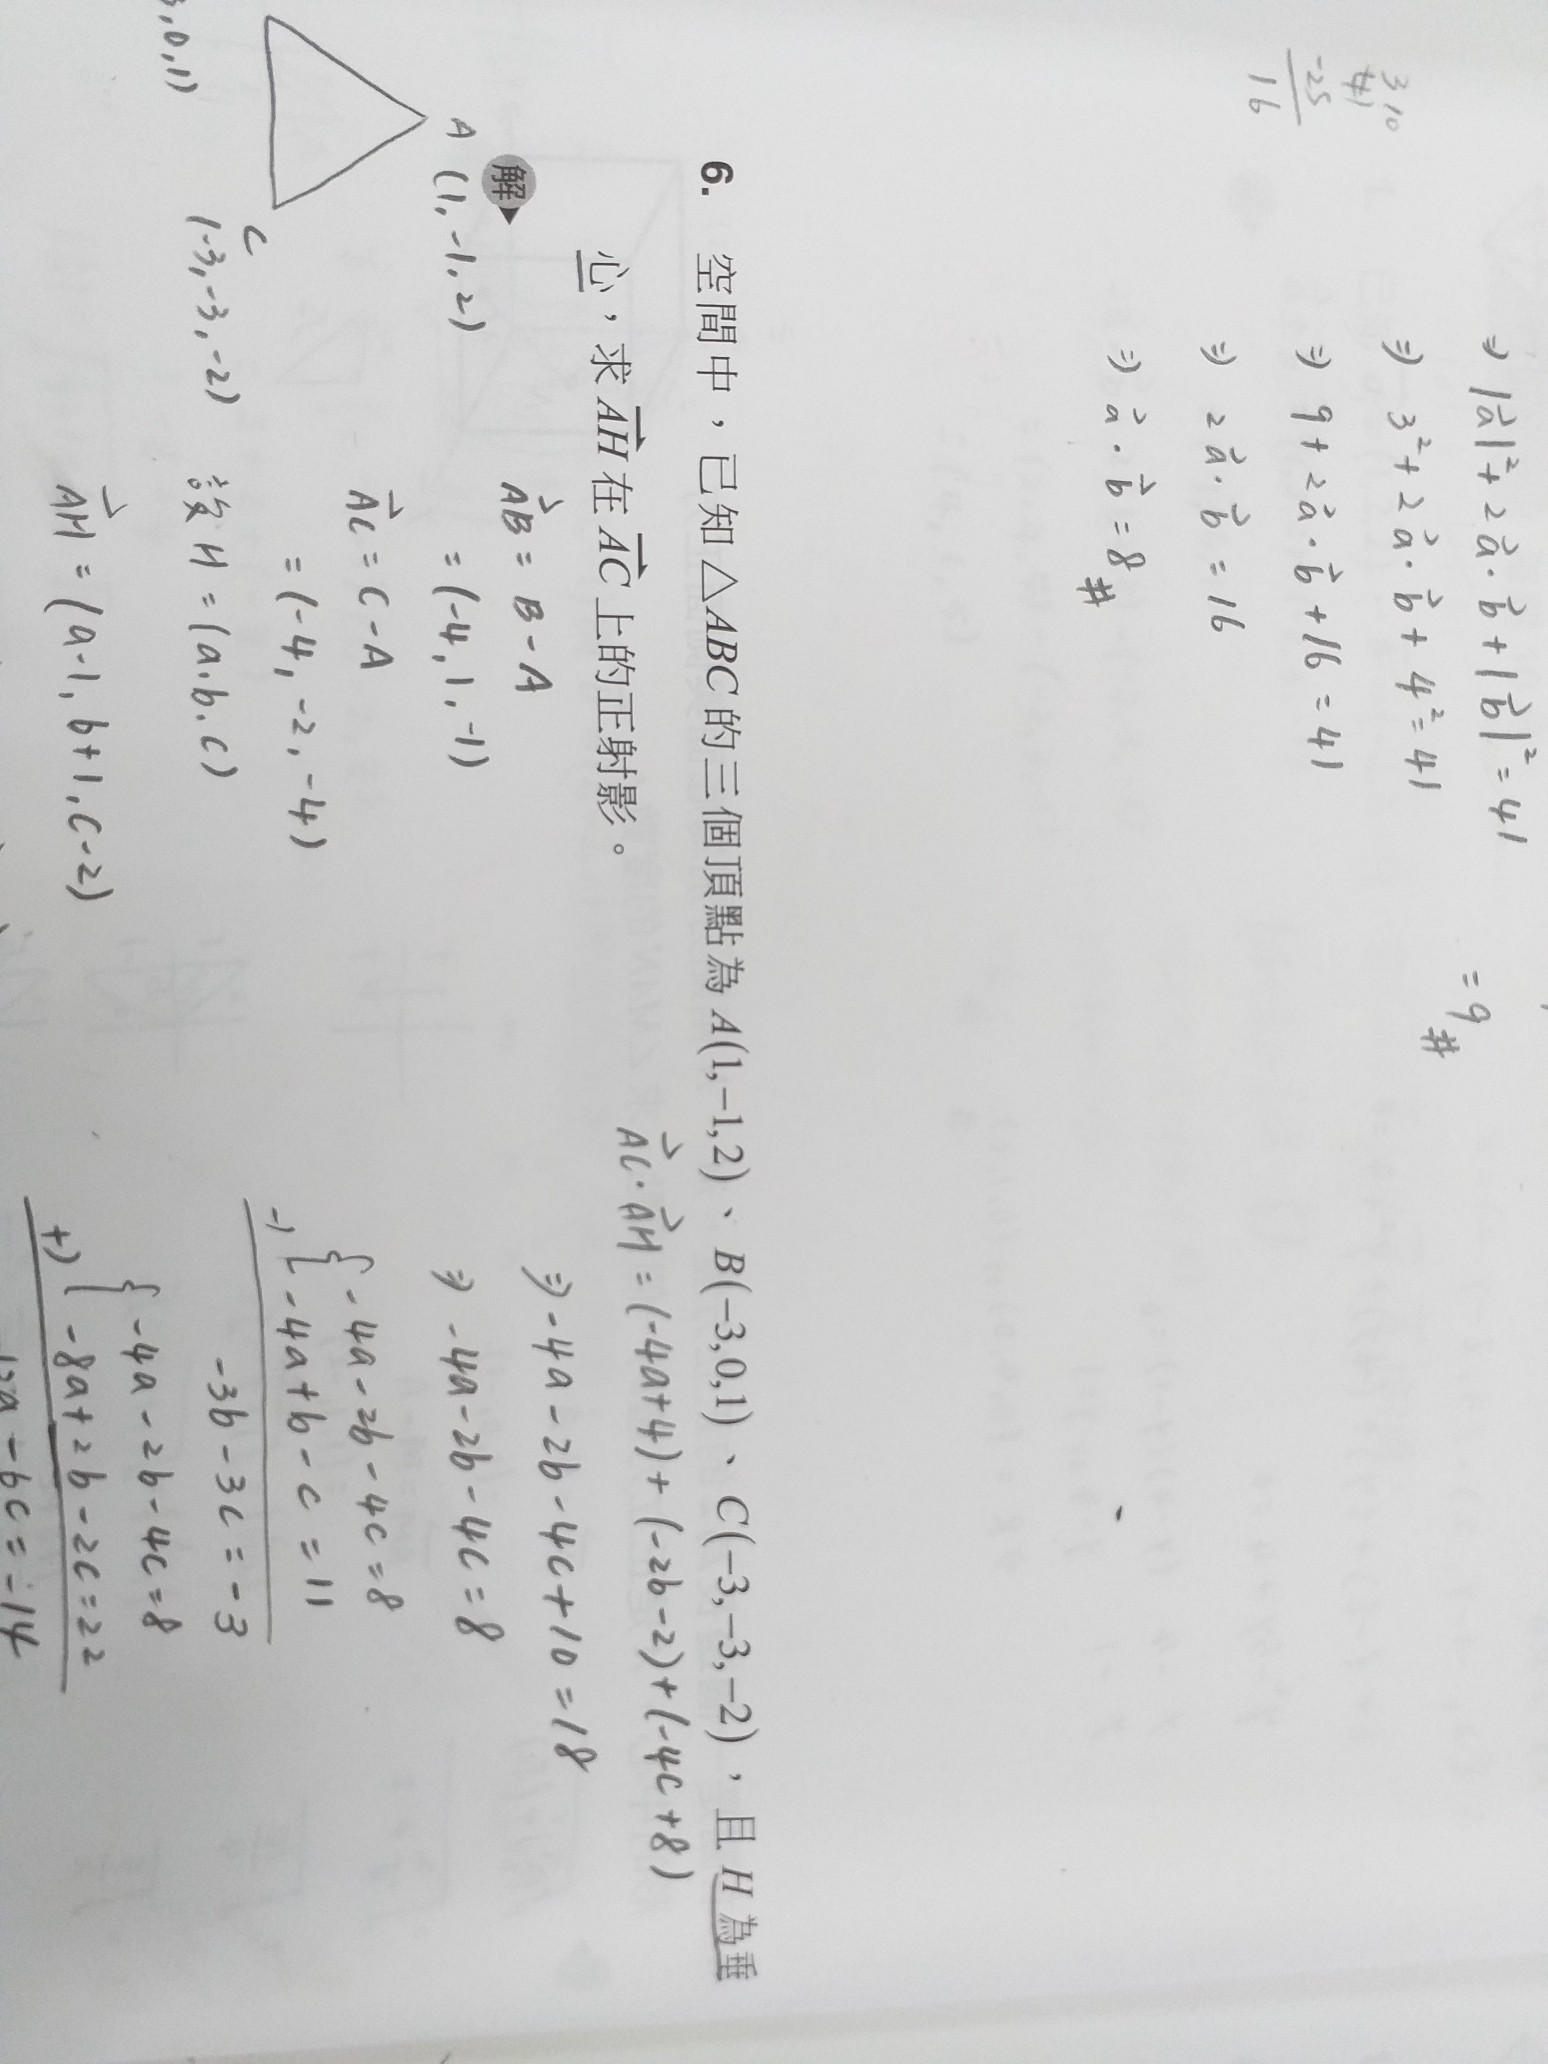 ⇒ |a⃗|² + 2a⃗·b⃗ + |b⃗|² = 41
⇒ 3² + 2a⃗·b⃗ + 4² = 41
⇒ 9 + 2a⃗·b⃗ + 16 = 41
⇒ 2a⃗·b⃗ = 16
⇒ a⃗·b⃗ = 8 #
= 9 #
3 10
41
-25
16
6. 空間中，已知△ABC的三個頂點為A(1,−1,2)、B(−3,0,1)、C(−3,−3,−2)，且H為垂
心，求AH⃗在AC⃗上的正射影。
解
A (1, -1, 2)
C
(-3, -3, -2)
, 0, 1)
AB⃗ = B - A
= (-4, 1, -1)
AC⃗ = C - A
= (-4, -2, -4)
設 H = (a, b, c)
AH⃗ = (a-1, b+1, c-2)
AC⃗·AH⃗ = (-4a+4) + (-2b-2) + (-4c+8)
⇒ -4a - 2b - 4c + 10 = 18
⇒ -4a - 2b - 4c = 8
{ -4a - 2b - 4c = 8
-) -4a + b - c = 11
-3b - 3c = -3
{ -4a - 2b - 4c = 8
+) -8a + 2b - 2c = 22
- 6c = -14